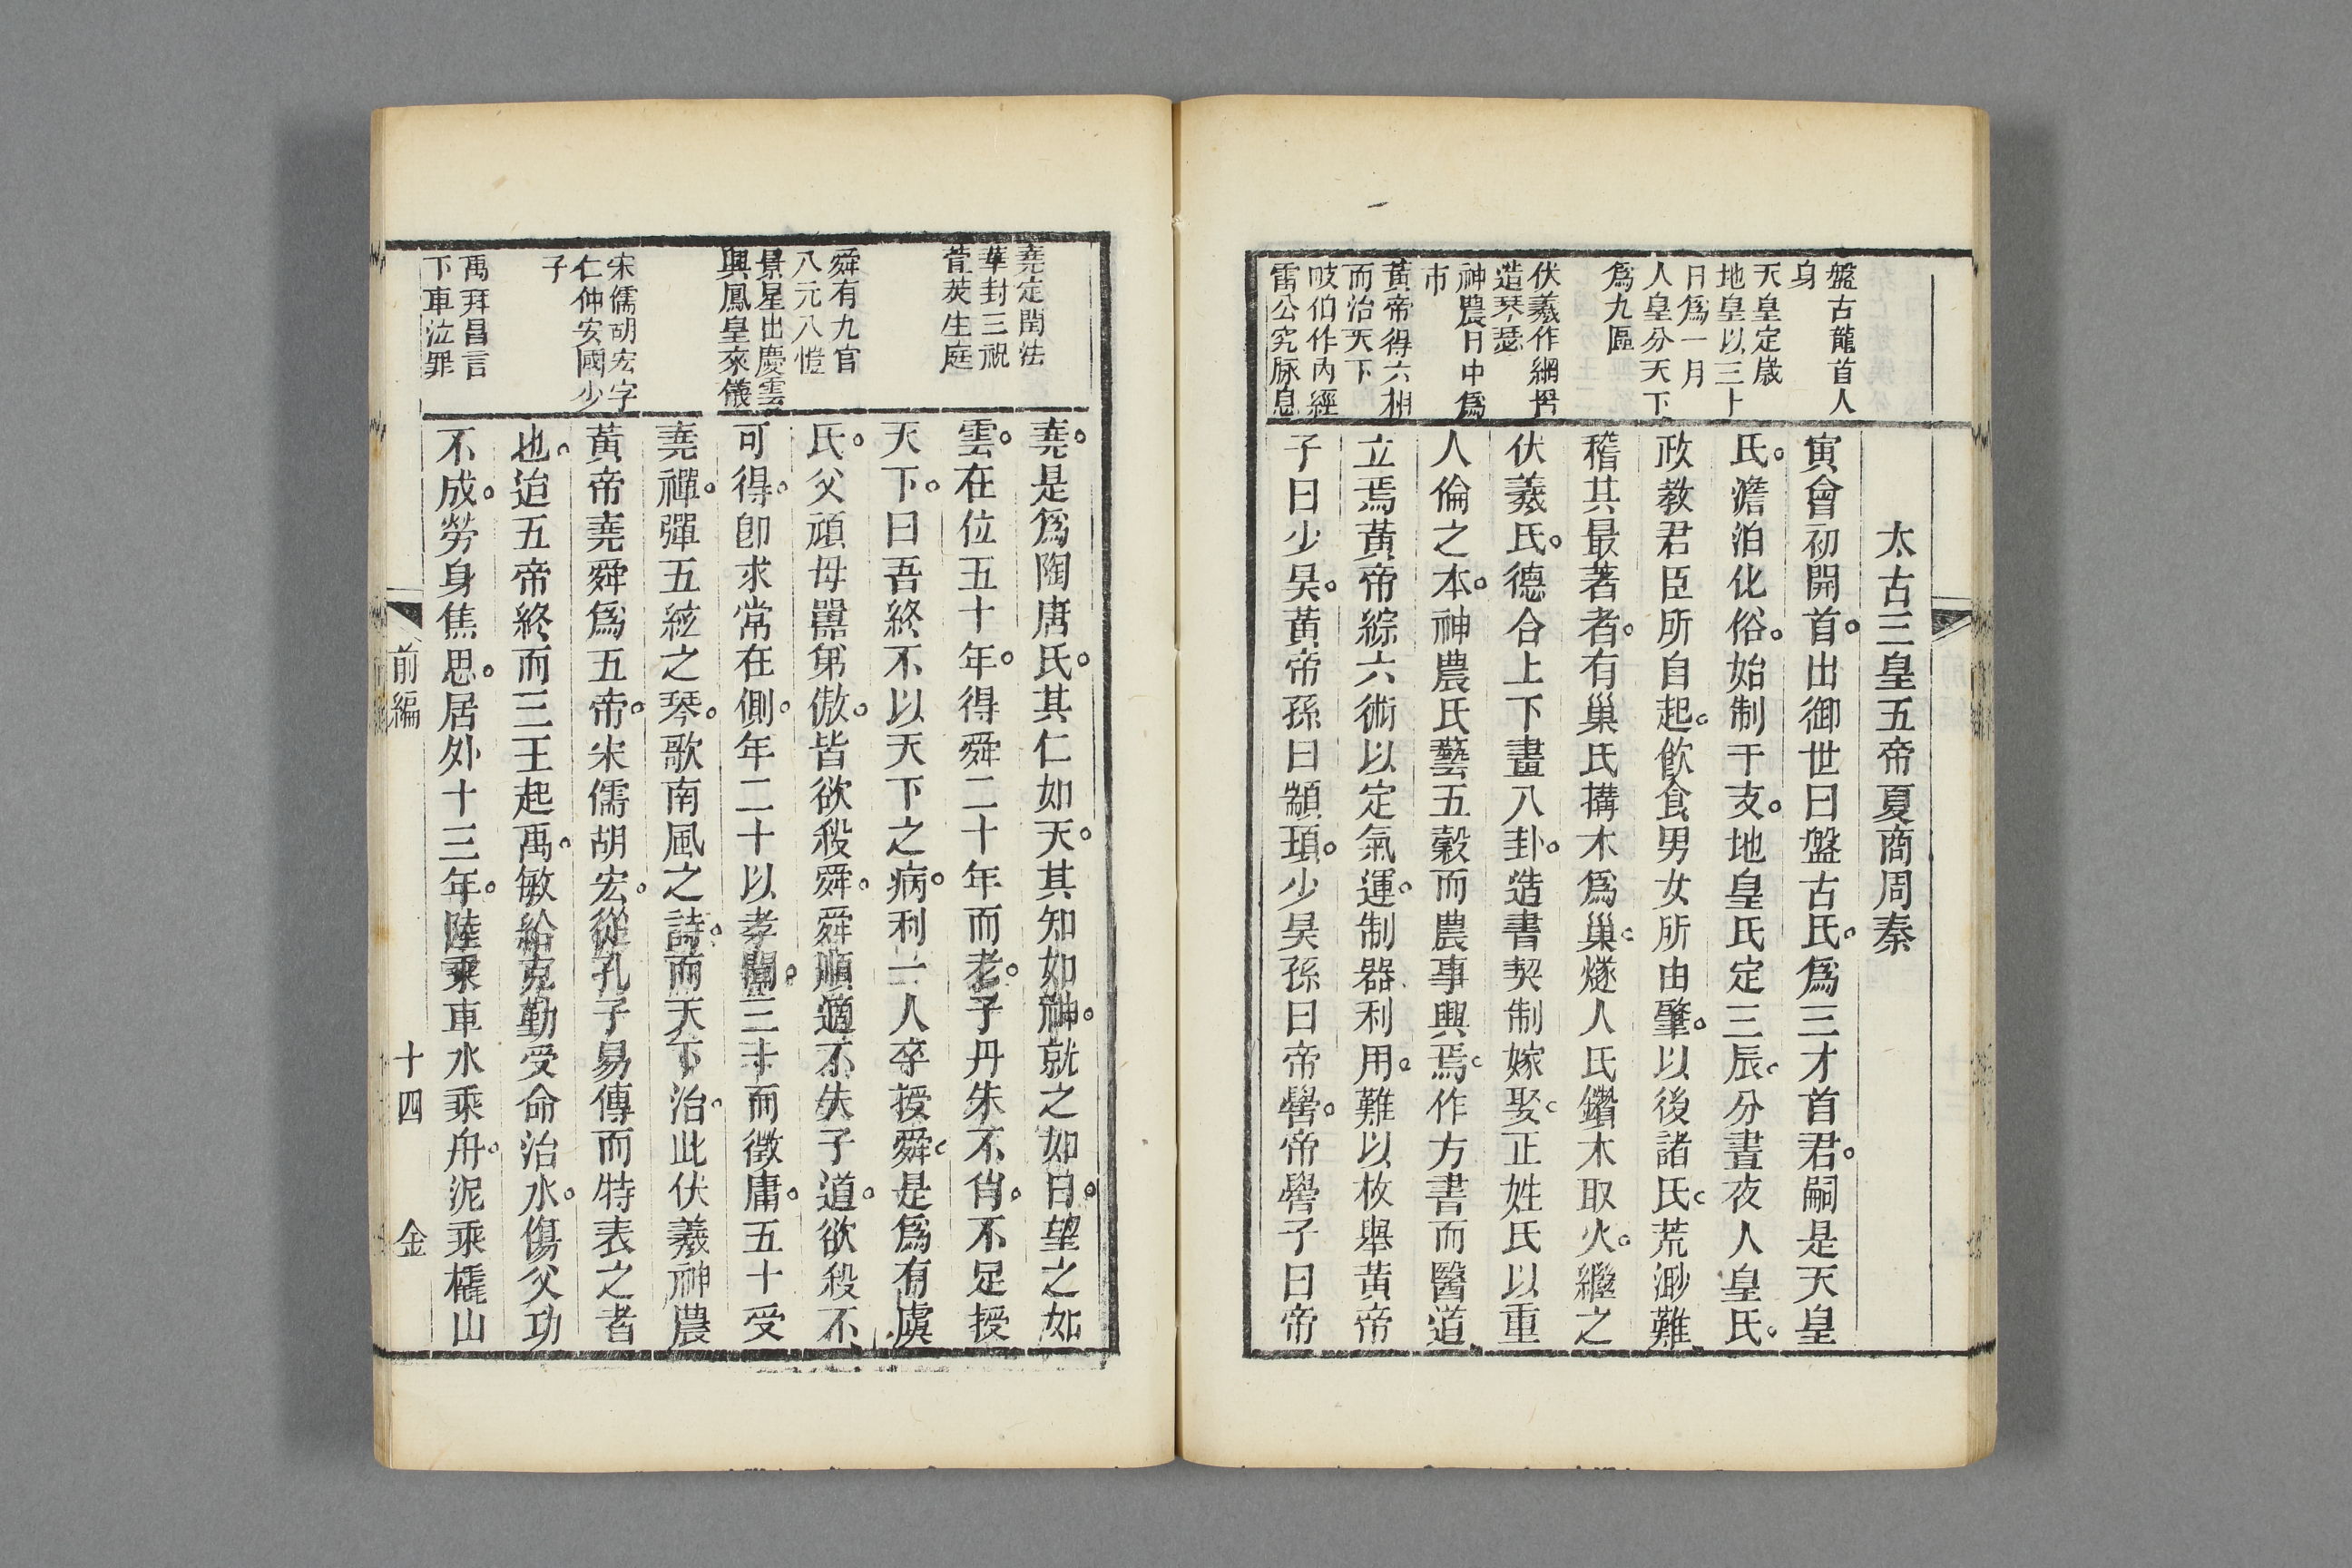 盤古龍首人
身
天皇定歲
地皇以三十
日爲一月
人皇分天下
爲九區
伏羲作網罟
造琴瑟
神農日中爲
市
黃帝得六相
而治天下
岐伯作內經
雷公究脉息
太古三皇五帝夏商周秦
寅會初開首。出御世曰盤古氏。爲三才首君。嗣是天皇
氏。澹泊化俗。始制干支。地皇氏定三辰。分晝夜人皇氏。
政教君臣所自起。飲食男女所由肇。以後諸氏。荒渺難
稽其最著者。有巢氏搆木爲巢。燧人氏鑽木取火。繼之
伏羲氏。德合上下畫八卦。造書契制嫁娶。正姓氏以重
人倫之本。神農氏藝五穀而農事興焉。作方書而醫道
立焉黃帝綜六術以定氣運。制器利用。難以枚舉黃帝
子曰少昊。黃帝孫曰顓頊。少昊孫曰帝嚳。帝嚳子曰帝
堯定閏法
華封三祝
蓂莢生庭
舜有九官
八元八愷
景星出慶雲
興鳳皇來儀
宋儒胡宏字
仁仲安國少
子
禹拜昌言
下車泣罪
堯。是爲陶唐氏。其仁如天。其知如神。就之如日。望之如
雲。在位五十年。得舜二十年而老。子丹朱不肖。不足授
天下。曰吾終不以天下之病。利一人卒授舜。是爲有虞
氏。父頑母嚚弟傲。皆欲殺舜。舜順適不失子道。欲殺不
可得。卽求常在側。年二十以孝聞。三十而徵庸。五十受
堯禪。彈五絃之琴。歌南風之詩。而天下治。此伏羲神農
黃帝堯舜爲五帝。宋儒胡宏。從孔子易傳而特表之者
也。迨五帝終而三王起禹。敏給克勤受命治水。傷父功
不成。勞身焦思。居外十三年。陸乘車水乘舟。泥乘橇山
前編
十四
金